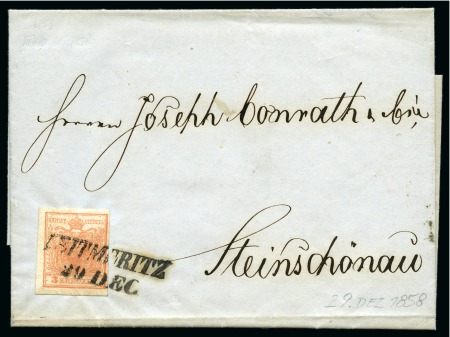 Herren Joseph Conrath & Cie,
LEITMERITZ
29 DEC
Steinschönau
29. DEZ 1858